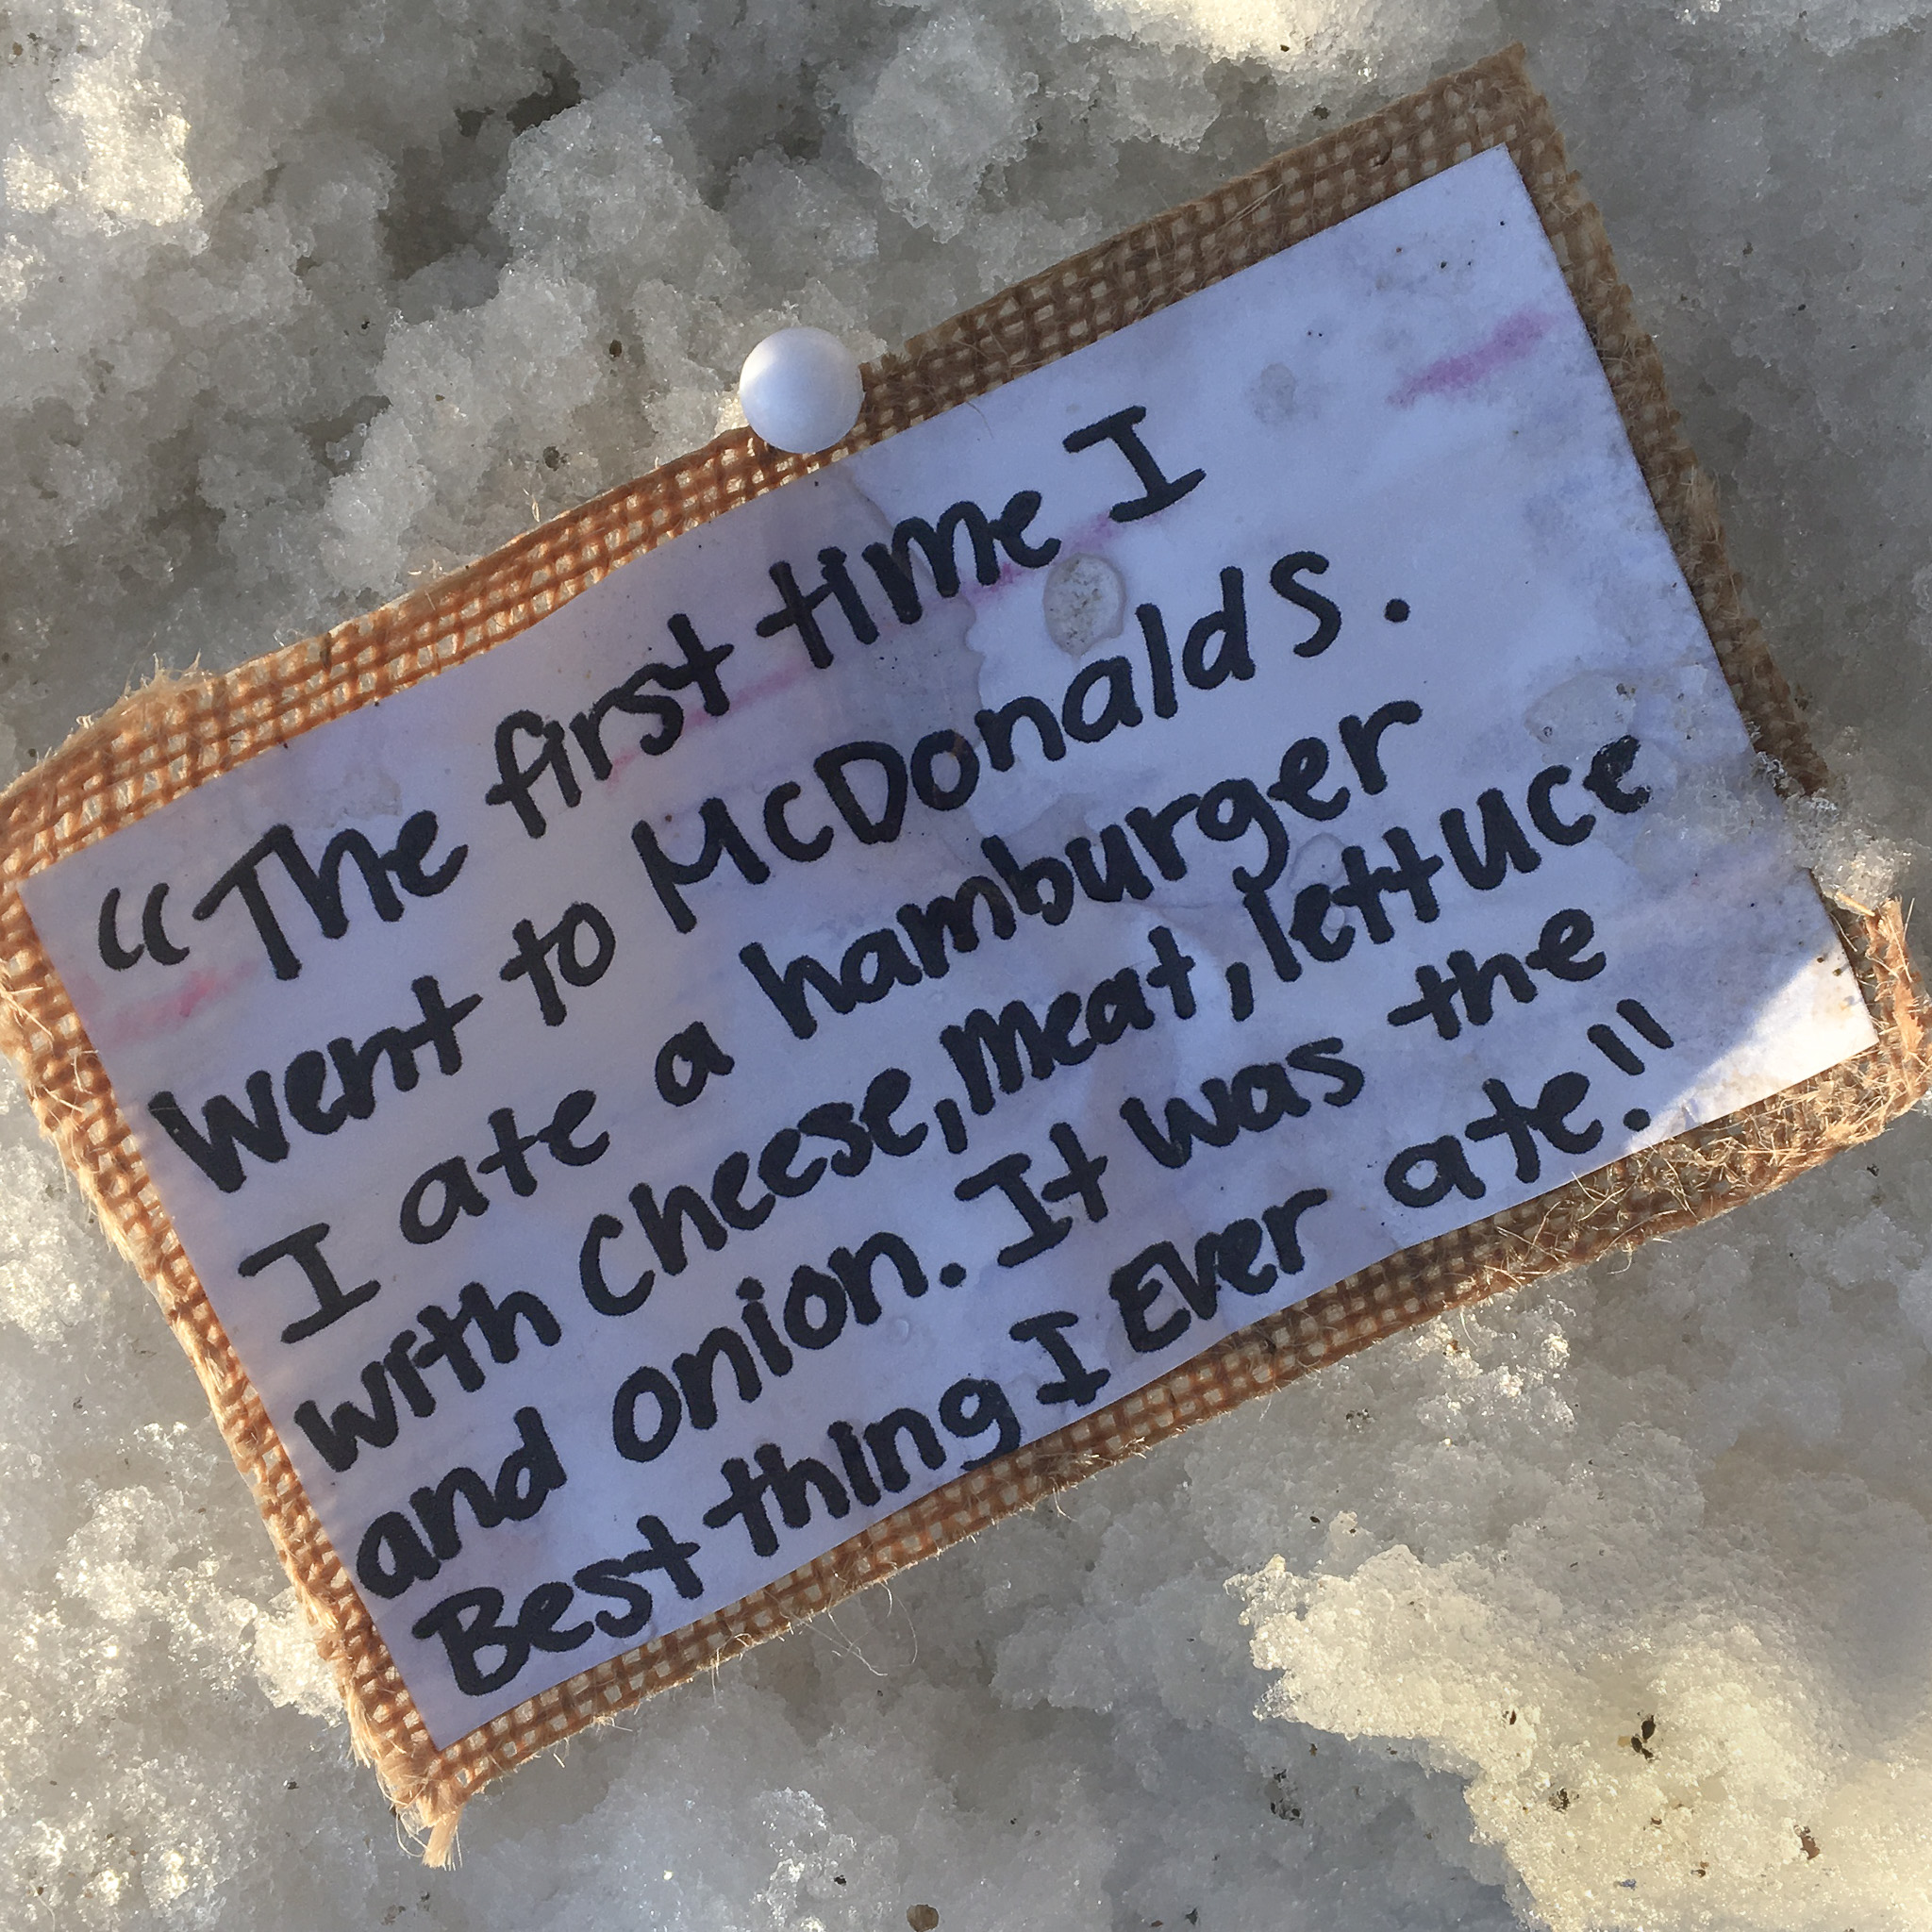 "The first time I
went to McDonalds.
I ate a hamburger
with Cheese, meat, lettuce
and onion. It was the
Best thing I Ever ate!"